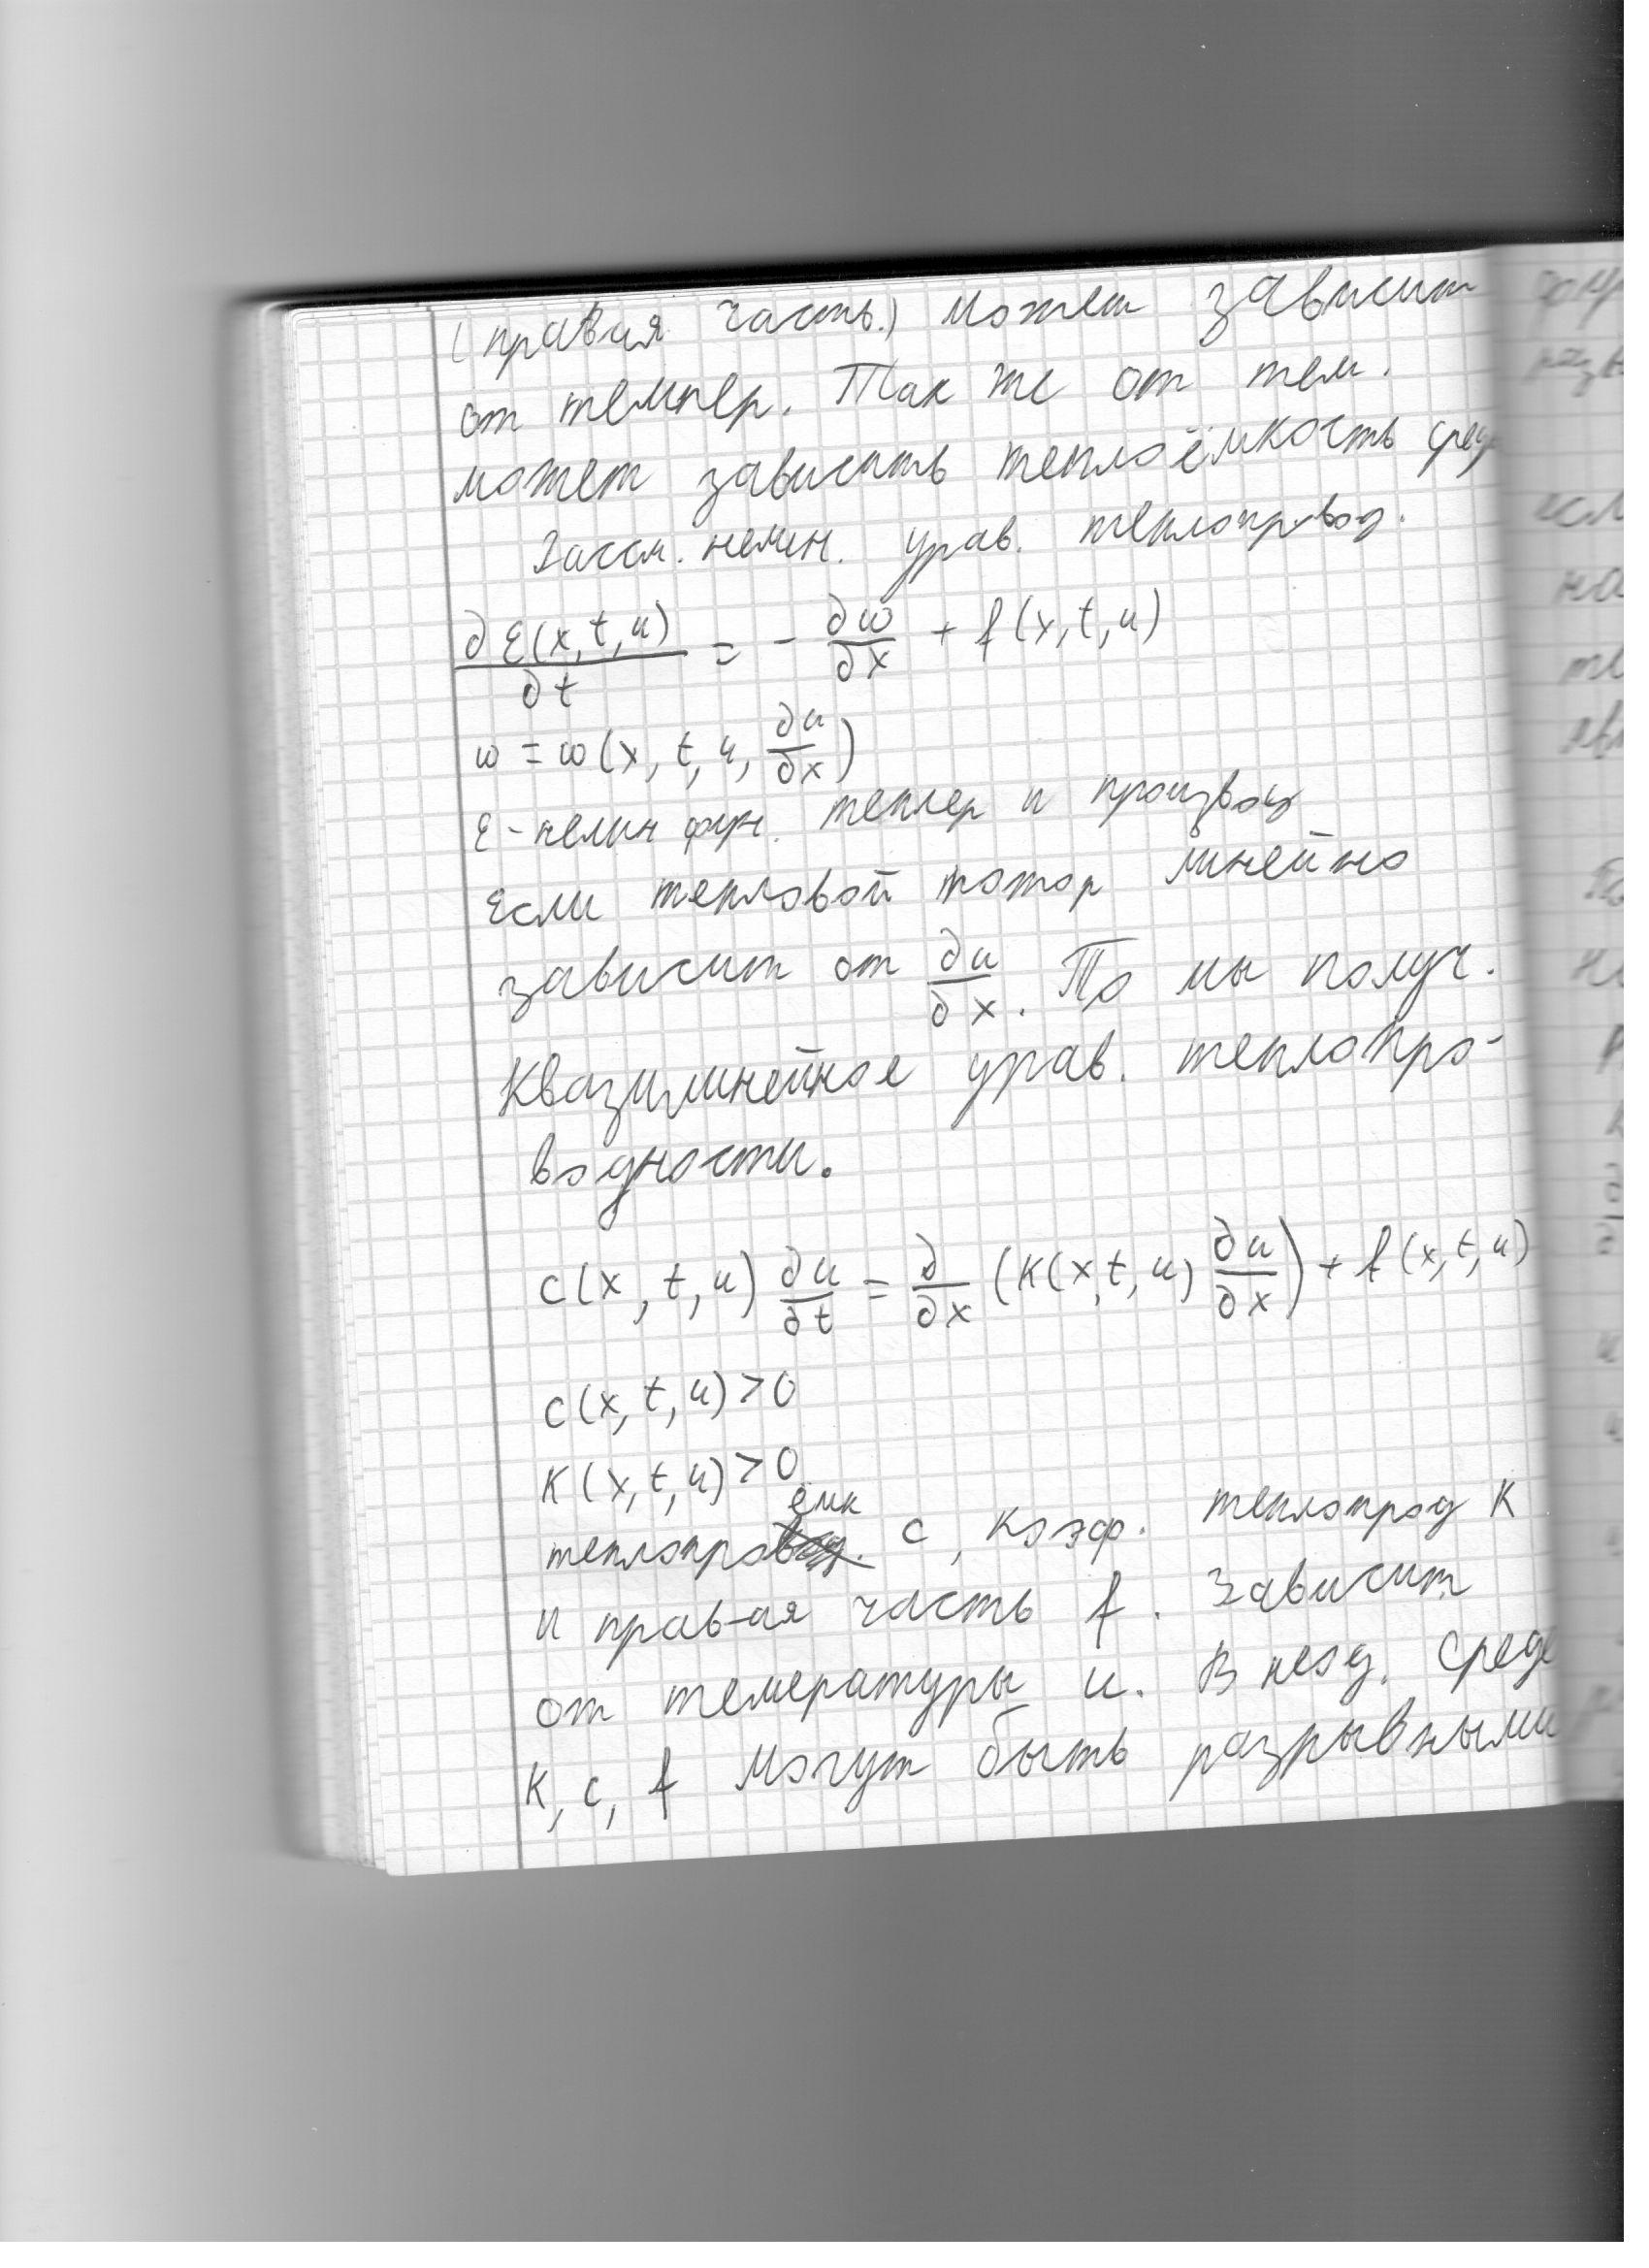 (правая часть) может зависит
от темпер. Так же от тем.
может зависить теплоёмкость сред
Рассм. нелин. урав. теплопровод.
∂ε(x,t,u)/∂t = - ∂w/∂x + f(x,t,u)
w = w(x, t, u, ∂u/∂x)
ε - нелин фун. темпер и производ
Если тепловой поток линейно
зависит от ∂u/∂x. То мы получ.
Квазилинейное урав. теплопро-
водности.
c(x, t, u) ∂u/∂t = ∂/∂x (K(x,t,u) ∂u/∂x) + f(x,t,u)
c(x, t, u) > 0
K(x, t, u) > 0
ёмк
теплопровод. c, коэф. теплопрод K
и прав-ая часть f. Зависит
от темературы u. В неод. среде
K, c, f могут быть разрывными